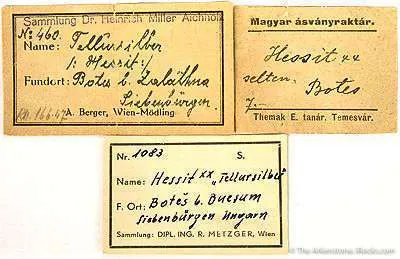 Sammlung Dr. Heinrich Miller Aichholz
No: 460.
Name: Tellursilber
/: Hessit :/
Fundort: Botes b. Zalathna
Siebenbürgen
A. Berger, Wien-Mödling
Magyar ásványraktár.
Hessit xx
selten.
Botes
7.-
Themak E. tanár. Temesvár.
Nr. 1083 S.
Name: Hessit xx "Tellursilber"
F. Ort: Botés b. Bucsum
Siebenbürgen Ungarn
Sammlung: DIPL. ING. R. METZGER, Wien
© The Arkenstone, iRocks.com